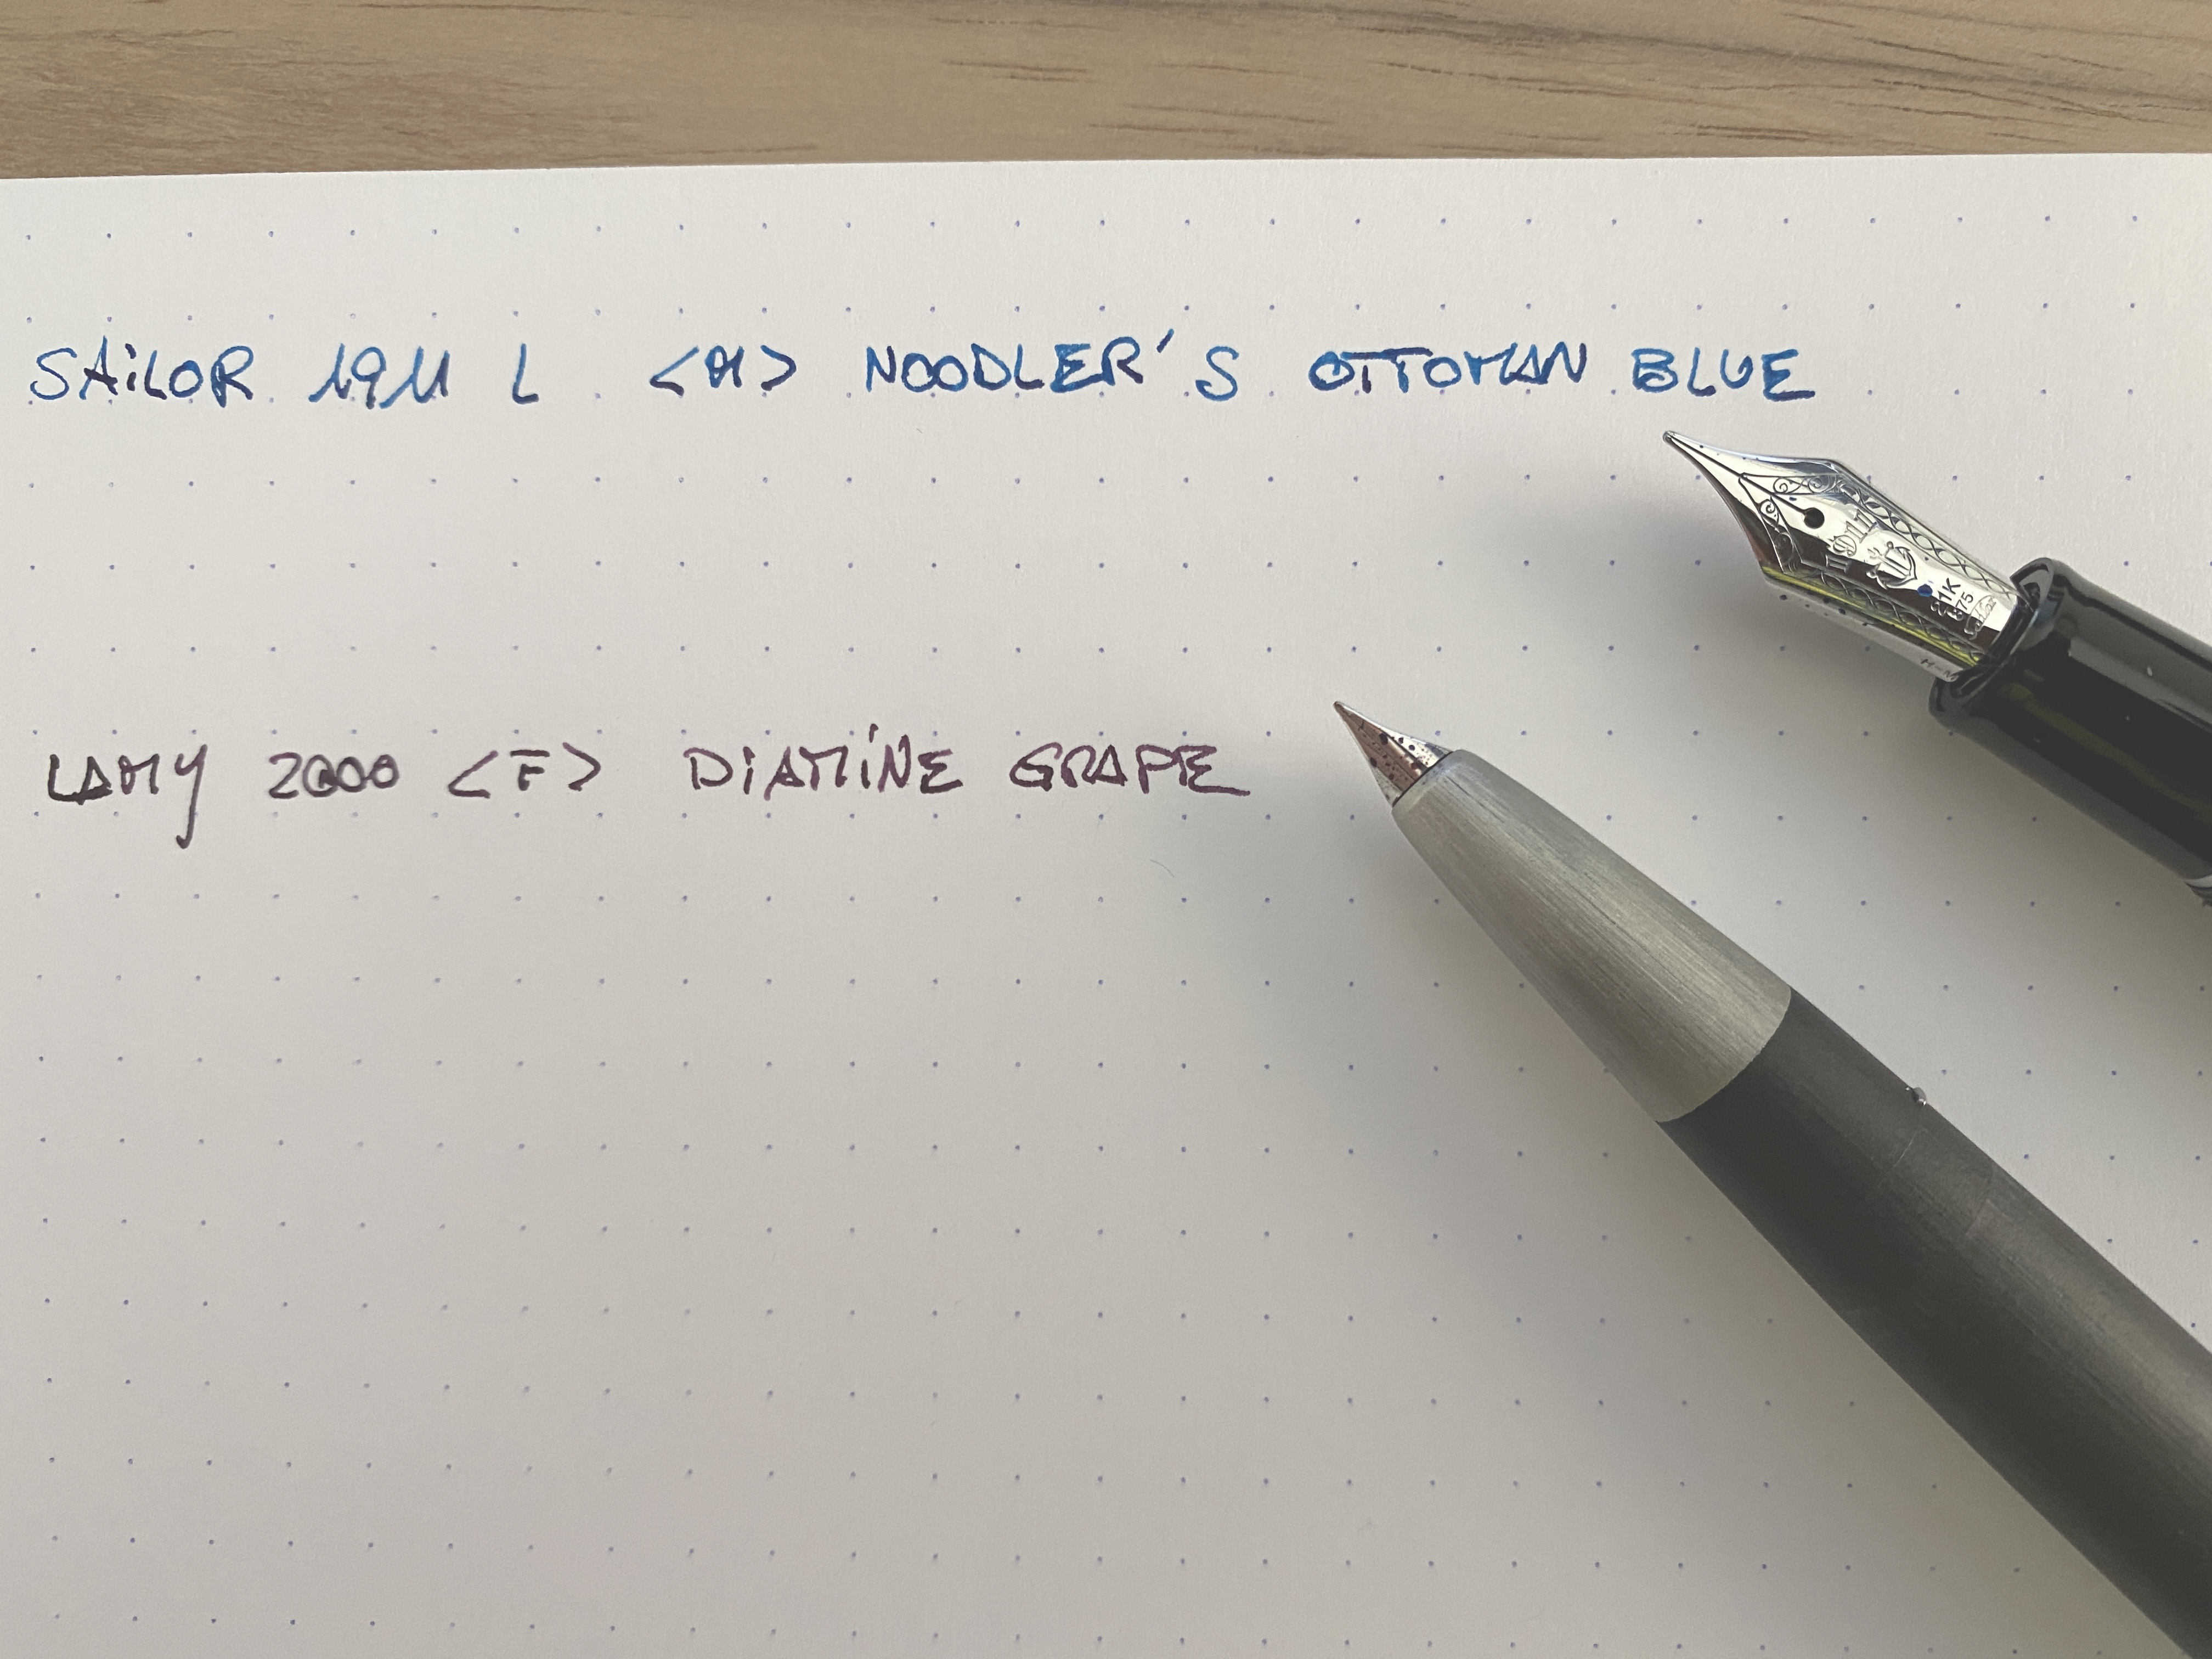 SAiLOR 1911 L <M> NOODLER'S OTTOMAN BLUE
1911
21K
875
LAMY 2000 <F> DiAMiNE GRAPE